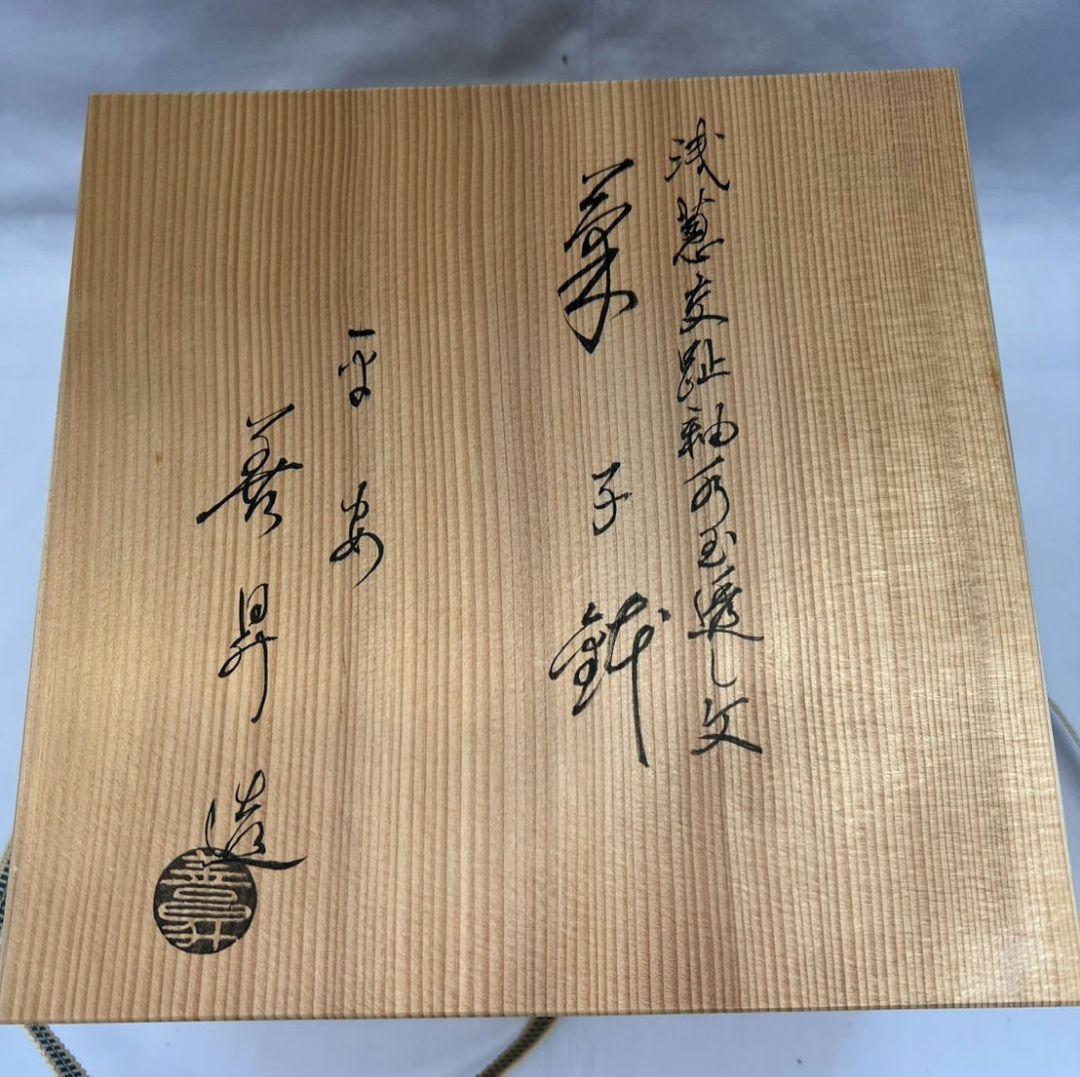 浅葱交趾釉水玉透し文
菓子鉢
平安
善昇造
善昇